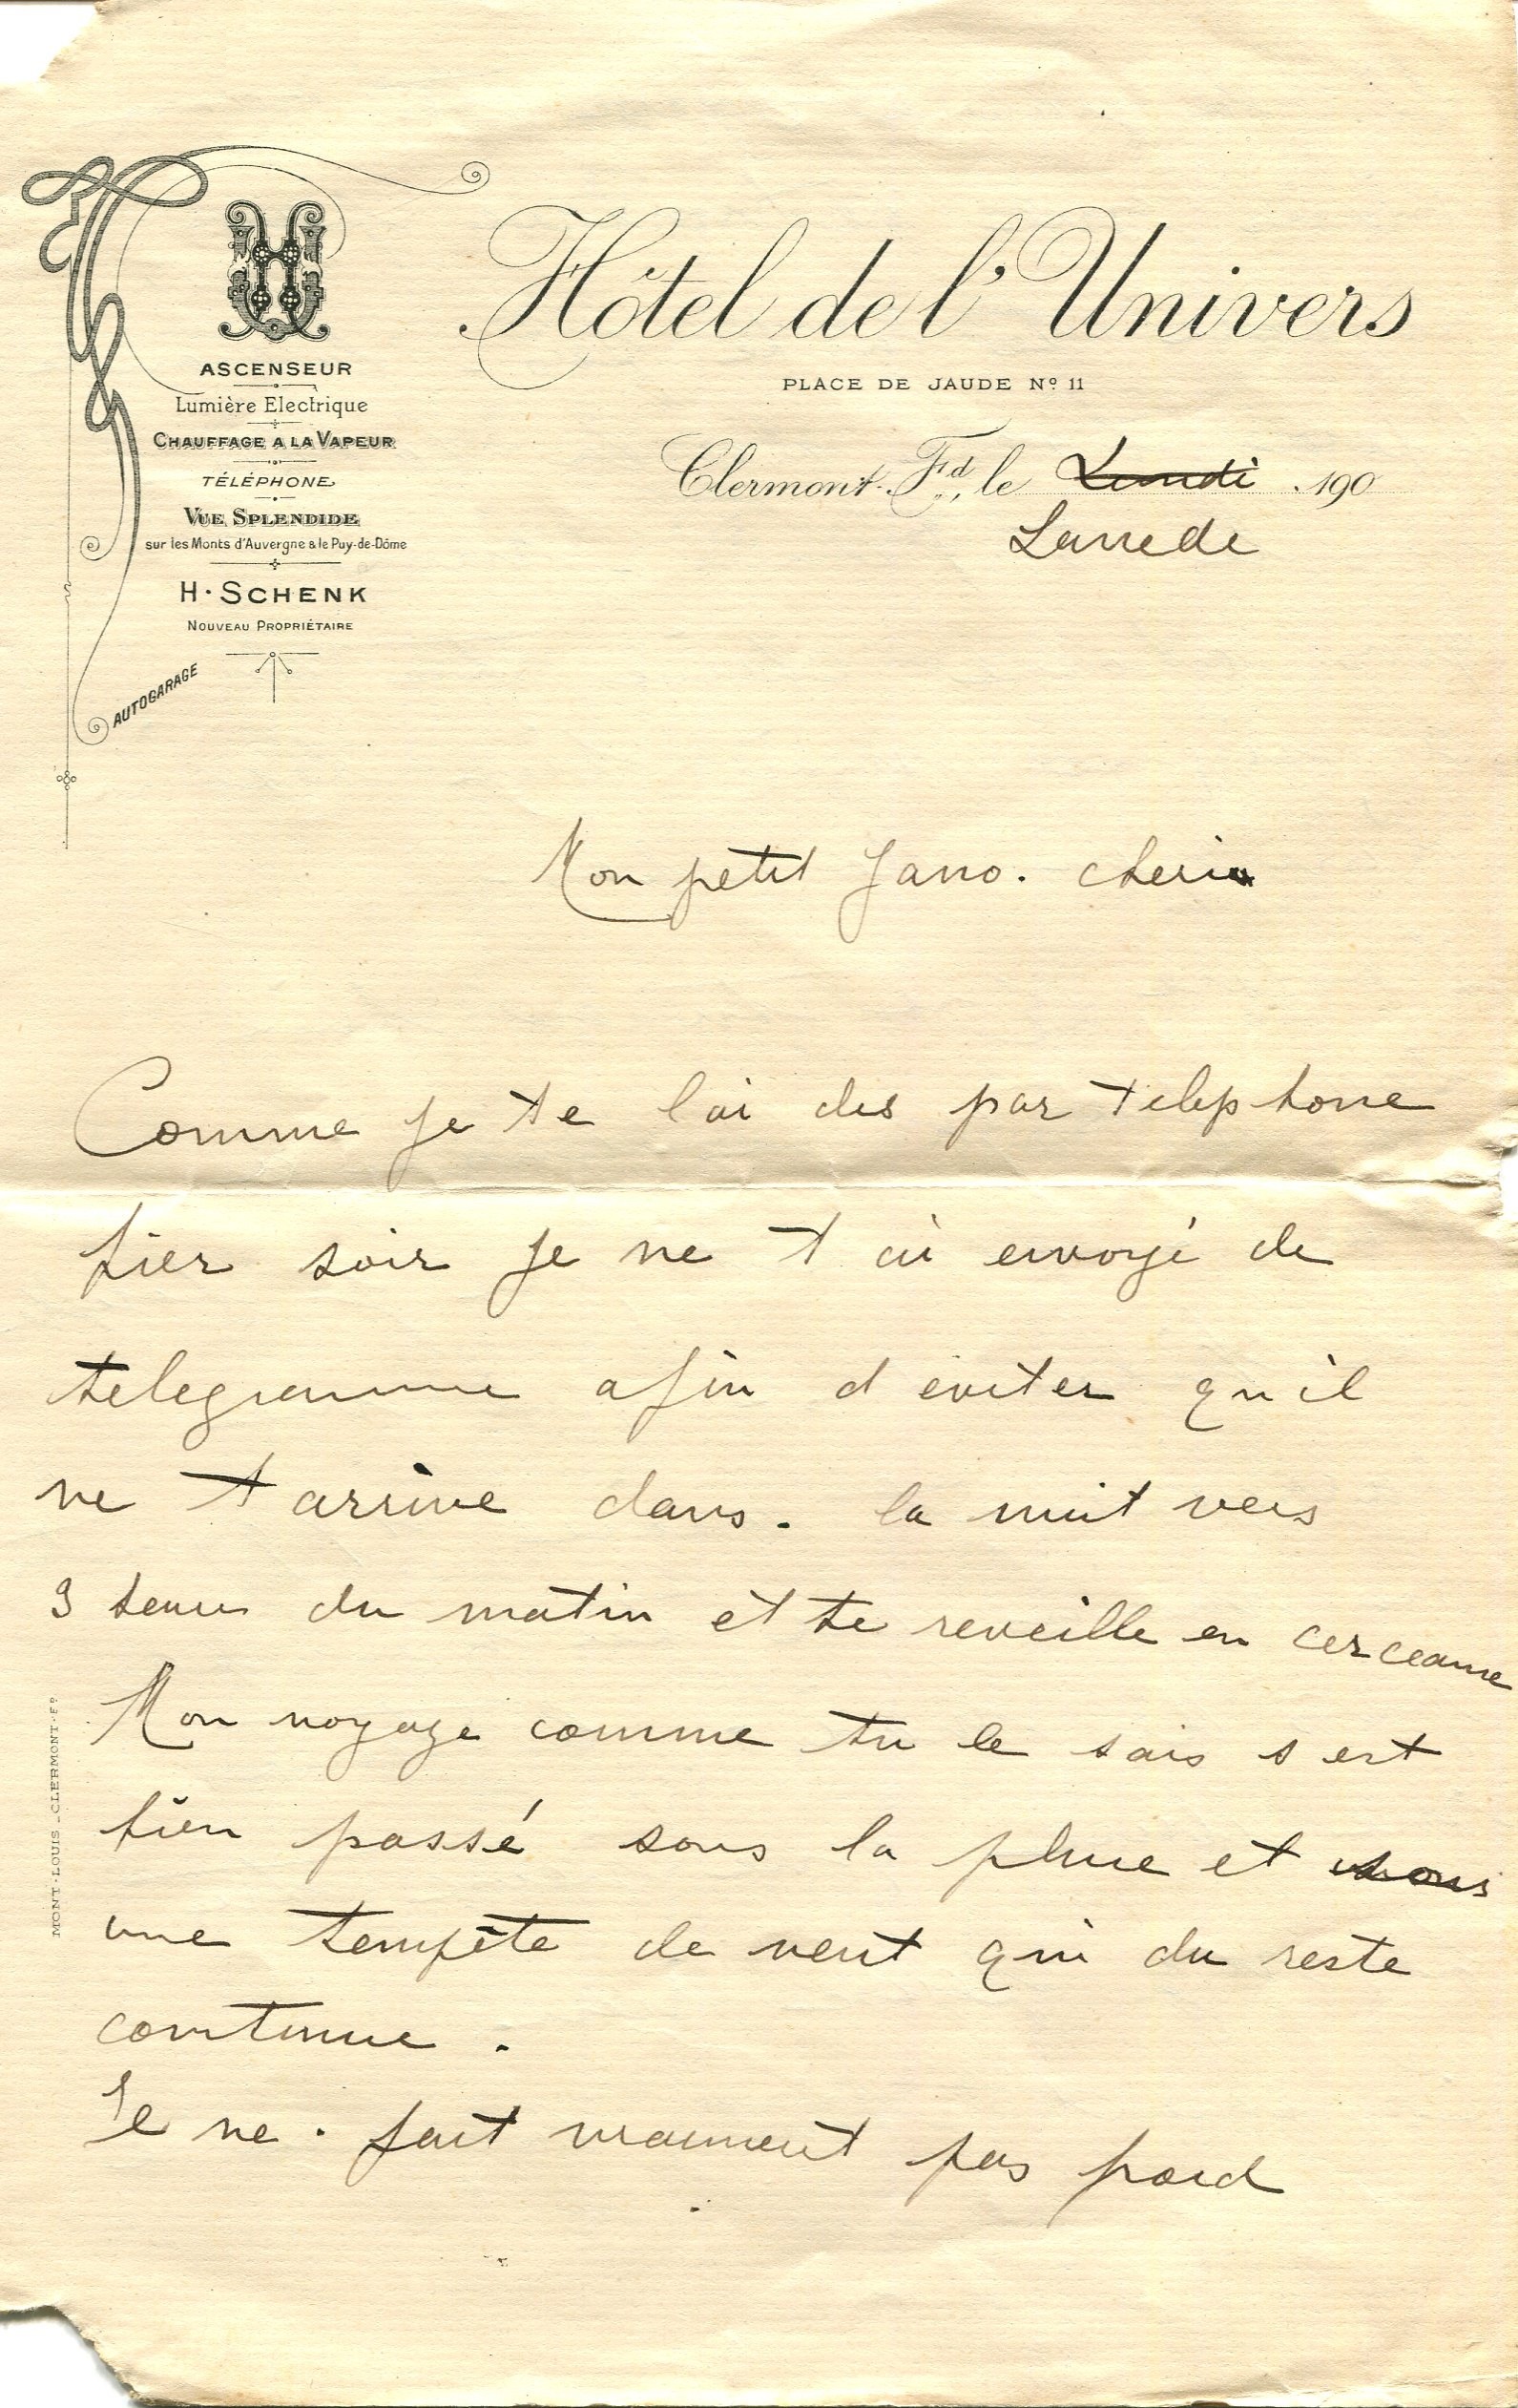 HU
ASCENSEUR
Lumière Electrique
CHAUFFAGE A LA VAPEUR
TÉLÉPHONE
VUE SPLENDIDE
sur les Monts d'Auvergne & le Puy-de-Dôme
H. SCHENK
NOUVEAU PROPRIÉTAIRE
AUTOGARAGE
Hôtel de l'Univers
PLACE DE JAUDE Nº 11
Clermont-Fd, le Lundi 190
Mon petit Jano. cheri
Comme je te lai dis par telephone
hier soir je ne t ai envoyé de
telegramme afin d eviter qu il
ne t arrive dans. la nuit vers
3 heure du matin et te reveille en cerceaune
Mon voyage comme tu le sais s est
bien passé sous la pluie et sous
une tempête de vent qui du reste
continue.
Il ne. fait vraiment pas froid
MONT-LOUIS_CLERMONT-Fº